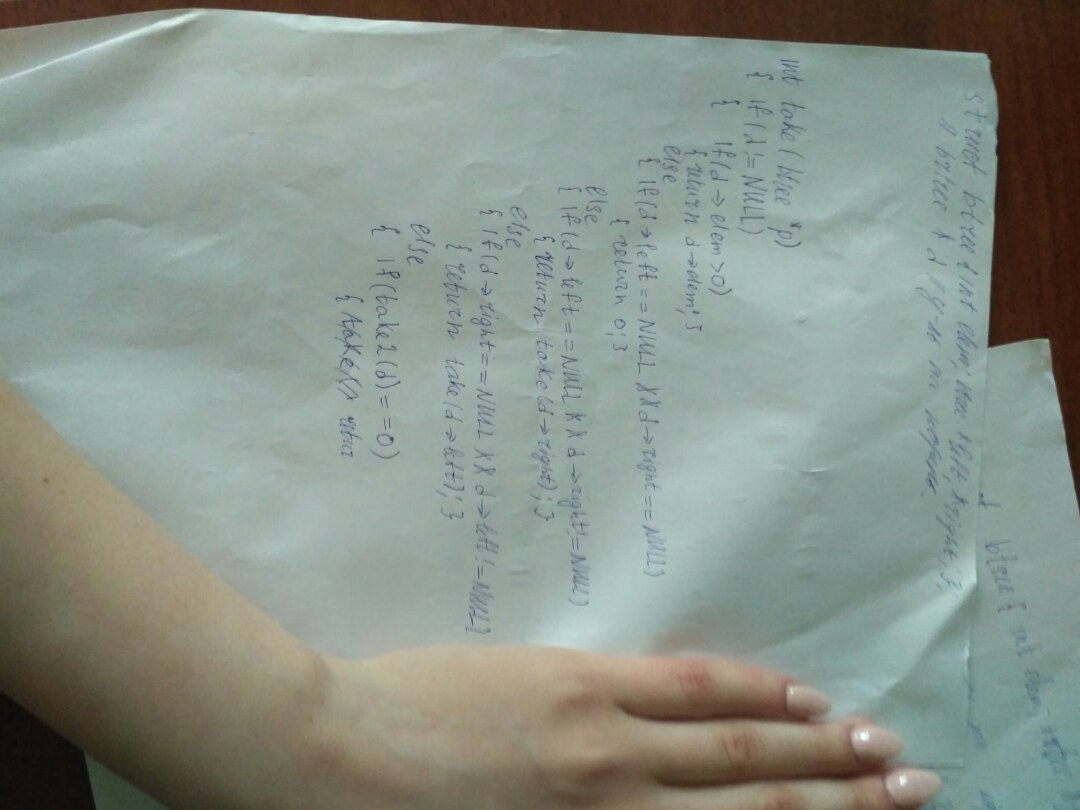 struct btree { int elem; btree *left, *right; };
// btree * d // у-ль на
int take (btree *p)
{ if (d != NULL)
{ if (d → elem > 0)
{ return d → elem; }
else
{ if (d → left == NULL && d → right == NULL)
{ return 0; }
else
{ if (d → left == NULL && d → right != NULL)
{ return take (d → right); }
else
{ if (d → right == NULL && d → left != NULL)
{ return take (d → left); }
else
{ if (take2(d) == 0)
{
btree { int elem;